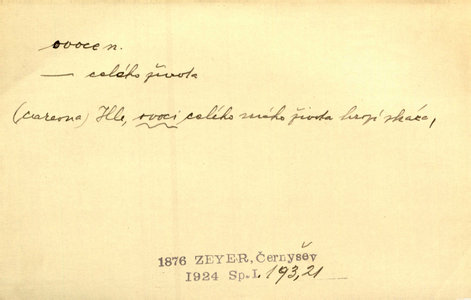 ovoce n.
— celého života
(carevna) Hle, ovoci celého mého života hrozí zkáza,
1876 ZEYER, Černyšev
1924 Sp. I. 193,21